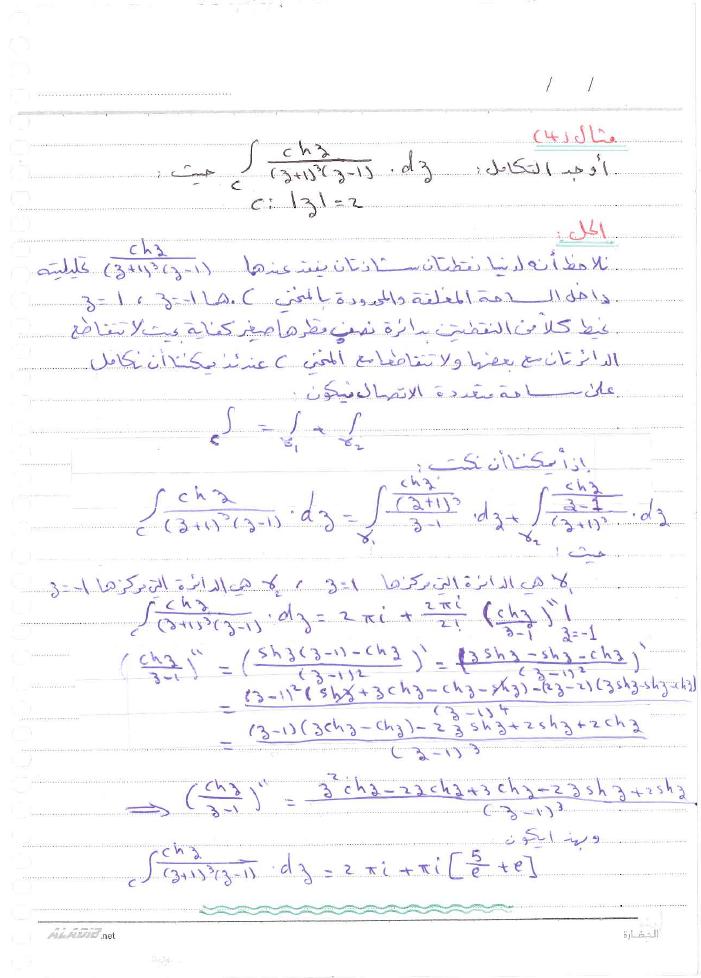 / /
مثال (4)
أوجد التكامل: ∫_C chz/((z+1)³(z-1)) · dz حيث:
C: |z| = 2
الحل:
نلاحظ أنه لدينا نقطتان شاذتان يفقد عندها chz/((z+1)³(z-1)) تحليليته
داخل الساحة المغلقة والمحدودة بالمنحني C. هما z=-1 ، z=1
نحيط كلاً من النقطتين بدائرة نصف قطرها صغير كفاية بحيث لا تتقاطع
الدائرتان مع بعضها ولا تتقاطعا مع المنحني C عندئذ يمكننا أن نكامل
على ساحة متعددة الاتصال فيكون:
∫_C = ∫_γ₁ + ∫_γ₂
إذاً يمكننا أن نكتب:
∫_C chz/((z+1)³(z-1)) · dz = ∫_γ₁ (chz/(z+1)³)/(z-1) · dz + ∫_γ₂ (chz/(z-1))/(z+1)³ · dz
حيث:
γ₁ هي الدائرة التي مركزها z=1 ، γ₂ هي الدائرة التي مركزها z=-1
∫_C chz/((z+1)³(z-1)) · dz = 2πi + 2πi/2! (chz/(z-1))'' |_{z=-1}
(chz/(z-1))'' = ((shz(z-1)-chz)/(z-1)²)' = ((zshz-shz-chz)/(z-1)²)'
= ((z-1)²(shz+zchz-chz-shz)-(2z-2)(zshz-shz-chz))/(z-1)⁴
= ((z-1)(zchz-chz)-2zshz+2shz+2chz)/(z-1)³
⟹ (chz/(z-1))'' = (z²chz-2zchz+3chz-2zshz+2shz)/(z-1)³
وبهذا يكون
∫_C chz/((z+1)³(z-1)) · dz = 2πi + πi[5/e + e]
ALADIB.net
الحضارة